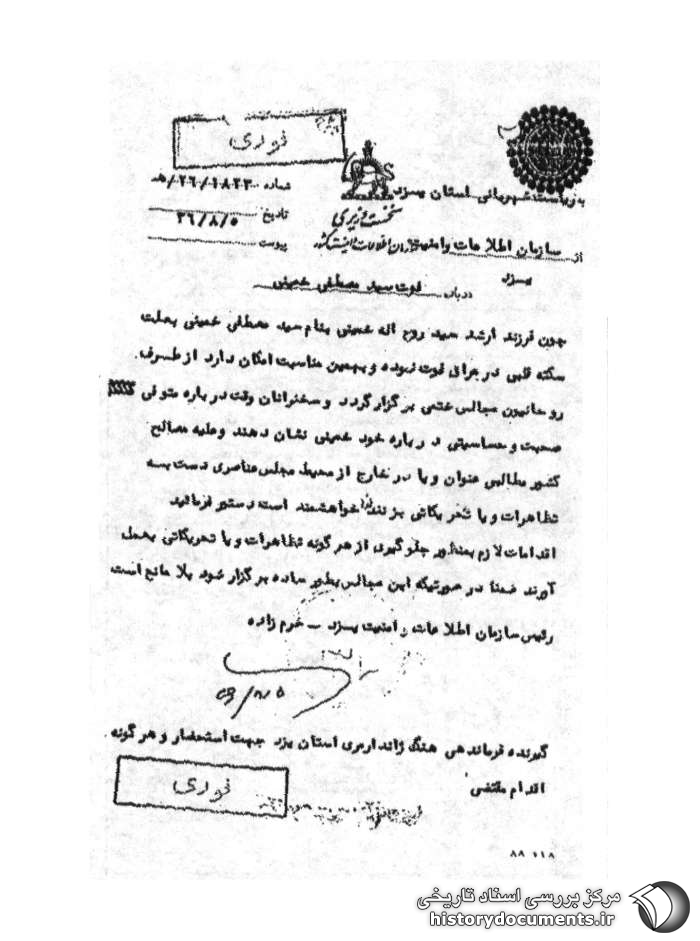 فوری
به ریاست شهربانی استان یزد
شماره ۲۶/۱۸۲۳/هد
نخست وزیری
تاریخ ۳۶/۸/۵
از سازمان اطلاعات و امنیت کشور
پیوست
یزد
درباره فوت سید مصطفی خمینی
چون فرزند ارشد سید روح اله خمینی بنام سید مصطفی خمینی بعلت
سکته قلبی در عراق فوت نموده و بهمین مناسبت امکان دارد از طرف
روحانیون مجالس ختمی برگزار گردد و سخنرانان وقت درباره متوفی
صحبت و حساسیتی درباره خود خمینی نشان دهند و علیه مصالح
کشور مطالبی عنوان و یا در خارج از محیط مجلس عناصری دست به
تظاهرات و یا تحریکاتی بزنند لذا خواهشمند است دستور فرمائید
اقدامات لازم بمنظور جلوگیری از هرگونه تظاهرات و یا تحریکاتی بعمل
آورند ضمنا در صورتیکه این مجالس بطور ساده برگزار شود بلا مانع است
رئیس سازمان اطلاعات و امنیت یزد – خرم زاده
گیرنده فرماندهی هنگ ژاندارمری استان یزد جهت استحضار و هرگونه
اقدام مقتضی
فوری
مرکز بررسی اسناد تاریخی
historydocuments.ir